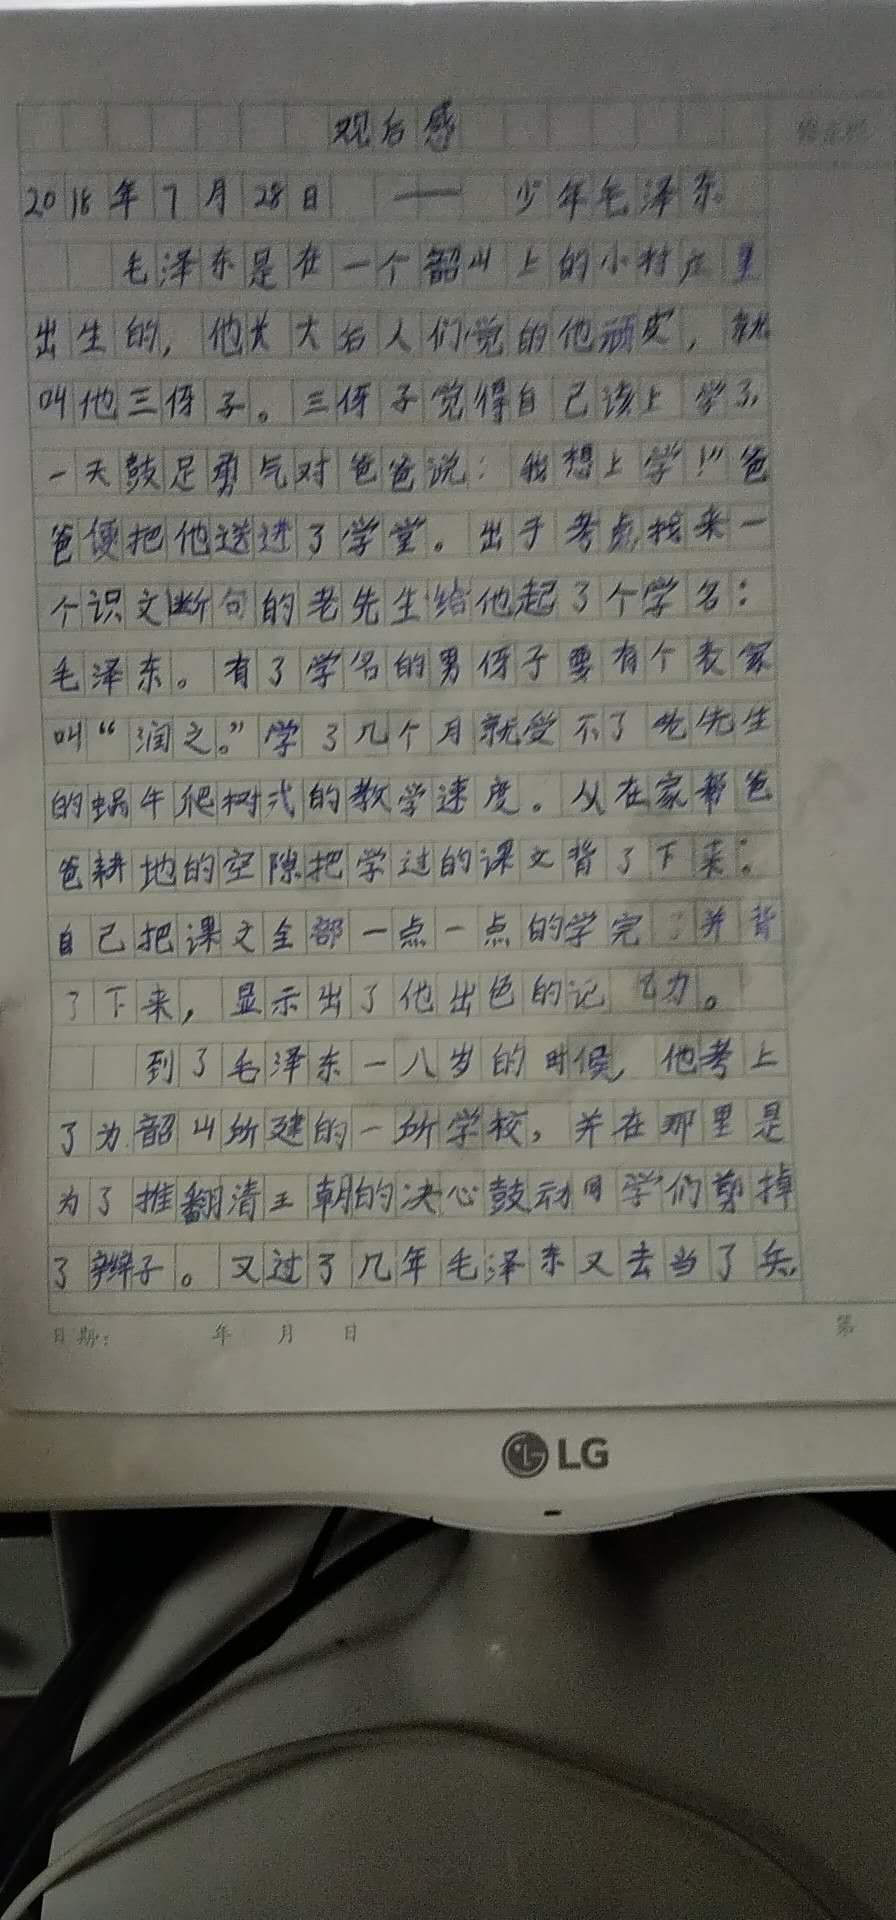 观后感
2018年7月28日 —— 少年毛泽东
毛泽东是在一个韶山上的小村庄里
出生的，他长大后人们觉的他顽皮，就
叫他三伢子。三伢子觉得自己该上学了，
一天鼓足勇气对爸爸说：我想上学！”爸
爸便把他送进了学堂。出于考虑找来一
个识文断句的老先生给他起了个学名：
毛泽东。有了学名的男伢子要有个表字
叫“润之。”学了几个月就受不了 先生
的蜗牛爬树式的教学速度。从在家帮爸
爸耕地的空隙把学过的课文背了下来。
自己把课文全部一点一点的学完 并背
了下来，显示出了他出色的记忆力。
到了毛泽东一八岁的时候，他考上
了为韶山所建的一所学校，并在那里是
为了推翻清王朝的决心鼓动同学们剪掉
了辫子。又过了几年毛泽东又去当了兵，
日期： 年 月 日
第
LG